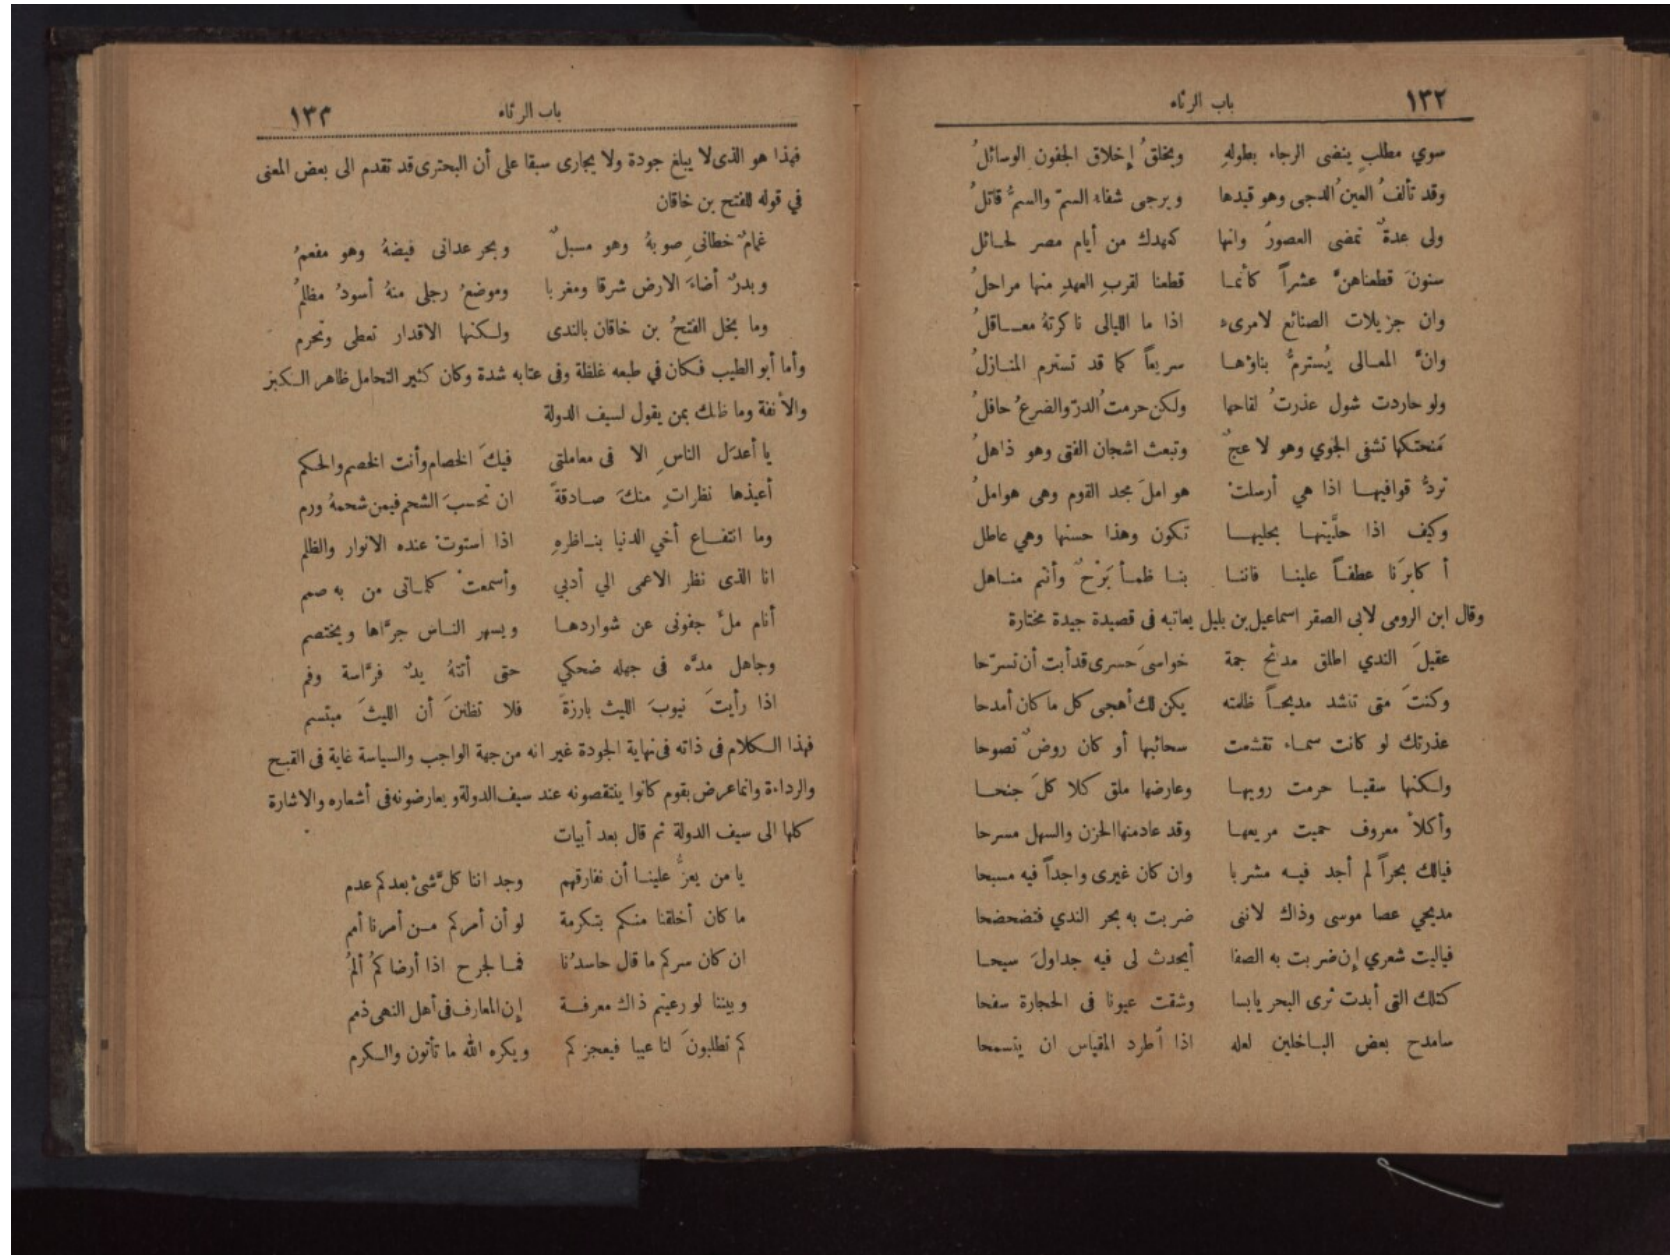 ١٣٢ باب الرثاء
سوي مطلبٍ ينضى الرجاء بطولهِ ويخلقُ إخلاق الجفون الوسائلُ
وقد تألفُ العين الدجى وهو قيدها ويرجى شفاء السمّ والسمُّ قاتلُ
ولى عدةٌ تمضى العصورُ وانها كعهدك من أيام مصر لحائل
سنونَ قطعناهنَّ عشراً كأنما قطعنا لقربِ العهدِ منها مراحلُ
وان جزيلات الصنائع لامرىء اذا ما الليالى ناكرتهُ معاقلُ
وانَّ المعالى يُسترمُّ بناؤها سريعاً كما قد تسترم المنازلُ
ولو حاردت شول عذرتُ لقاحها ولكن حرمتُ الدرّ والضرعُ حافلُ
مَنحتكها تشفى الجوي وهو لاعجٌ وتبعث اشجان الفتى وهو ذاهلُ
تردُّ قوافيها اذا هي أرسلتْ هواملَ مجد القوم وهى هواملُ
وكيف اذا حلَّيتها بحليها تكون وهذا حسنها وهى عاطل
أكابرَنا عطفاً علينا فاننا بنا ظمأ بَرْحٌ وأنتم مناهل
وقال ابن الرومى لابى الصقر اسماعيل بن بليل يعاتبه فى قصيدة جيدة مختارة
عقيلَ الندي اطلق مدائح جمة خواسىَ حسرى قد أبت أن تسرّحا
وكنتَ متى تنشد مديحاً ظلمته يكن لك أهجى كل ما كان أمدحا
عذرتك لو كانت سماء تقشمت سحائبها أو كان روضٌ تصوحا
ولكنها سقيا حرمت رويها وعارضها ملق كلا كلَ جنحا
وأكلأ معروف حميت مريعها وقد عاد منها الحزن والسهل مسرحا
فيالك بحراً لم أجد فيه مشربا وان كان غيرى واجداً فيه مسبحا
مديحي عصا موسى وذاك لاننى ضربت به بحر الندي فتضحضحا
فياليت شعري إن ضربت به الصفا أيحدث لى فيه جداولَ سيحا
كتلك التى أبدت ثرى البحر يابسا وشقت عيونا فى الحجارة سفحا
سامدح بعض الباخلين لعله اذا اَطرد المقياس ان يتسمحا
باب الرثاء ١٣٣
فهذا هو الذى لا يبلغ جودة ولا يجارى سبقا على أن البحترى قد تقدم الى بعض المعنى
في قوله للفتح بن خاقان
غمامٌ خطانىِ صوبهُ وهو مسبلٌ وبحر عدانى فيضهُ وهو مفعمُ
وبدرٌ أضاءَ الارض شرقا ومغربا وموضعُ رجلى منهُ أسودُ مظلمُ
وما بخل الفتحُ بن خاقان بالندى ولكنها الاقدار تعطى وتحرم
وأما أبو الطيب فكان في طبعه غلظة وفى عتابه شدة وكان كثير التحامل ظاهر الكبر
والأنفة وما ظنك بمن يقول لسيف الدولة
يا أعدَل الناسِ الا فى معاملتى فيكَ الخصام وأنت الخصم والحكم
أعيذها نظراتٍ منكَ صادقةً ان تحسبَ الشحم فيمن شحمهُ ورم
وما انتفاع أخي الدنيا بناظرهِ اذا استوتْ عنده الانوار والظلم
انا الذى نظر الاعمى الي أدبي وأسمعتْ كلماتى من به صمم
أنام ملَّ جفونى عن شواردها ويسهر الناس جرَّاها ويختصم
وجاهل مدَّه فى جهله ضحكي حتى أتتهُ يدٌ فرَّاسة وفم
اذا رأيتَ نيوبَ الليث بارزةً فلا تظننَ أن الليثَ مبتسم
فهذا الكلام فى ذاته فى نهاية الجودة غير انه من جهة الواجب والسياسة غاية فى القبح
والرداءة وانما عرض بقوم كانوا ينتقصونه عند سيف الدولة ويعارضونه فى أشعاره والاشارة
كلها الى سيف الدولة ثم قال بعد أبيات
يا من يعزُّ علينا أن نفارقهم وجداننا كلَّ شئ بعدكم عدم
ما كان أخلقنا منكم بتكرمة لو أن أمركم من أمرنا أمم
ان كان سركم ما قال حاسدُنا فما لجرح اذا أرضاكمُ ألمُ
وبيننا لو رعيتم ذاك معرفة إن المعارف فى أهل النهى ذمم
كم تطلبونَ لنا عيبا فيعجزكم ويكره الله ما تأتون والكرم